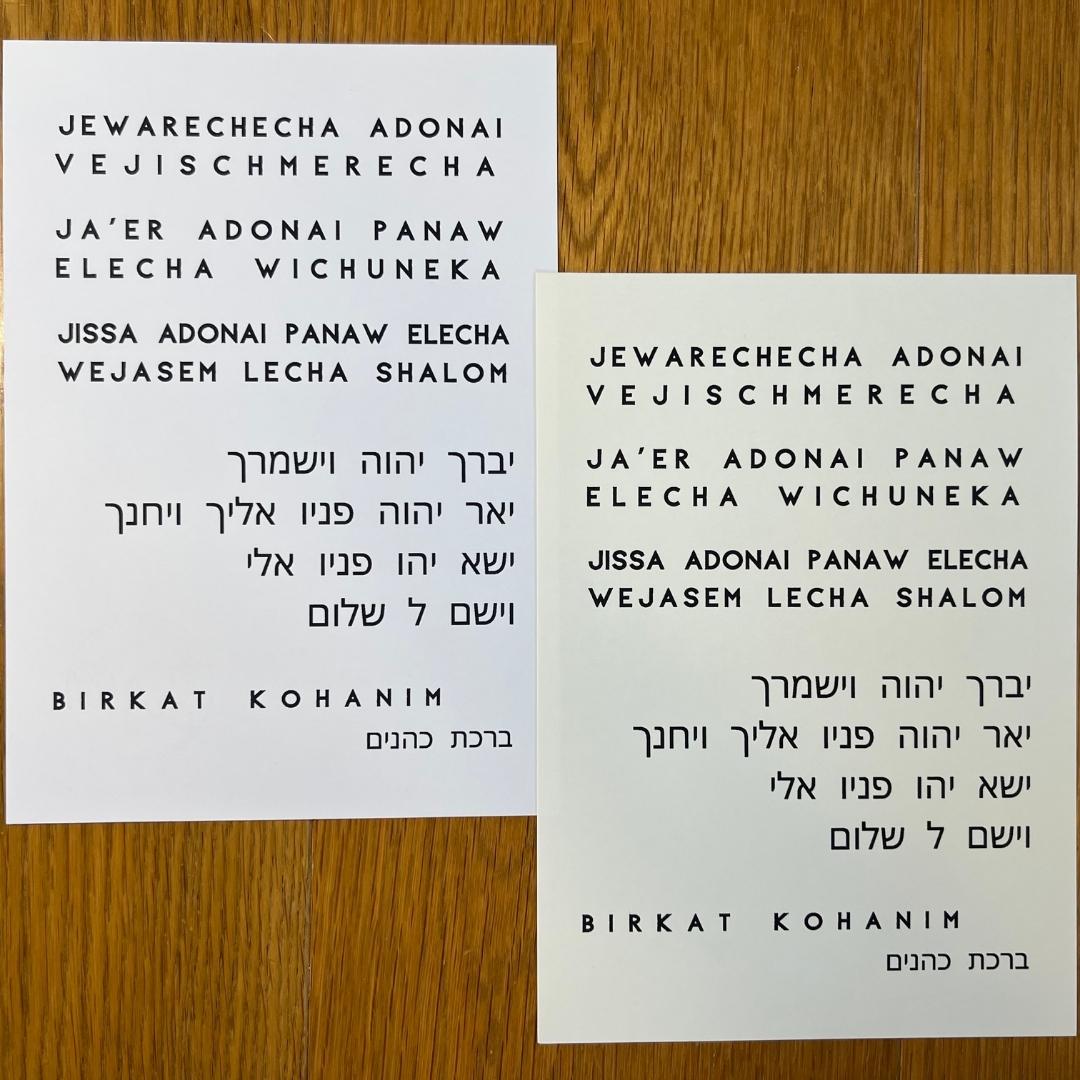 JEWARECHECHA ADONAI
VEJISCHMERECHA
JA'ER ADONAI PANAW
ELECHA WICHUNEKA
JISSA ADONAI PANAW ELECHA
WEJASEM LECHA SHALOM
יברך יהוה וישמרך
יאר יהוה פניו אליך ויחנך
ישא יהו פניו אלי
וישם ל שלום
BIRKAT KOHANIM
ברכת כהנים
JEWARECHECHA ADONAI
VEJISCHMERECHA
JA'ER ADONAI PANAW
ELECHA WICHUNEKA
JISSA ADONAI PANAW ELECHA
WEJASEM LECHA SHALOM
יברך יהוה וישמרך
יאר יהוה פניו אליך ויחנך
ישא יהו פניו אלי
וישם ל שלום
BIRKAT KOHANIM
ברכת כהנים